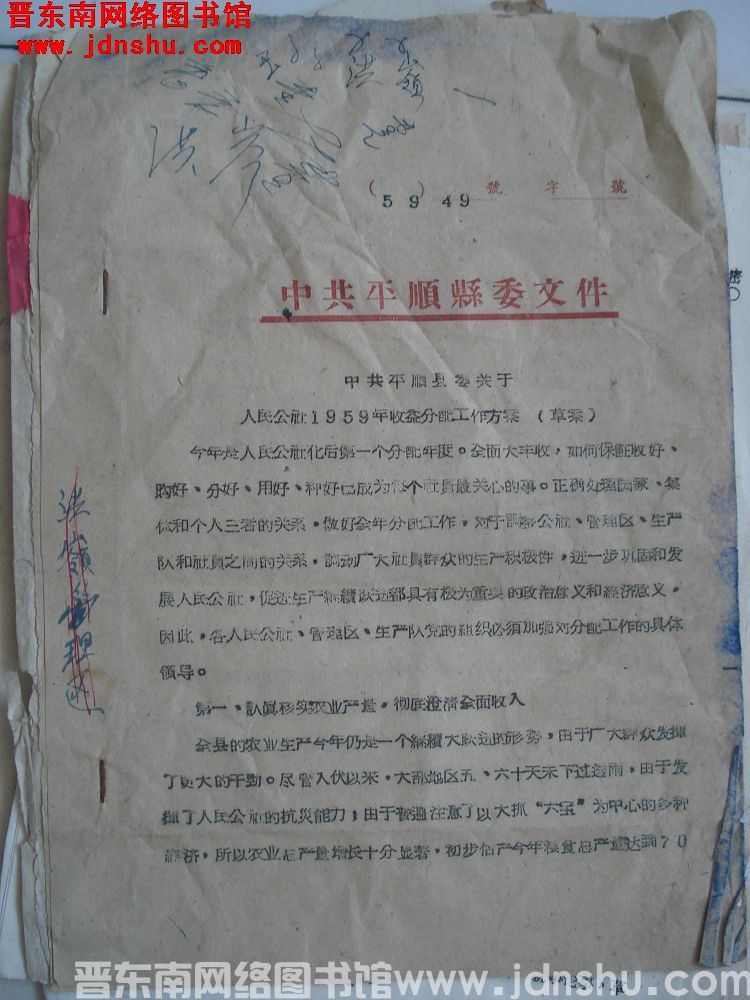 晋东南网络图书馆
www.jdnshu.com
(59)49號 字 號
中共平順縣委文件
中共平順县委关于
人民公社1959年收益分配工作方案（草案）
今年是人民公社化后第一个分配年度。全面大丰收，如何保証收好、
购好、分好、用好、种好已成为每个社員最关心的事。正确处理国家、集
体和个人三者的关系，做好全年分配工作，对于調整公社、管理区、生产
队和社員之間的关系，調动广大社員群众的生产积极性，进一步巩固和发
展人民公社，促进生产継續跃进都具有极为重要的政治意义和経济意义。
因此，各人民公社、管理区、生产队党的組织必須加强对分配工作的具体
領导。
第一、認眞核实农业产量，彻底澄清全面收入
全县的农业生产今年仍是一个継續大跃进的形势，由于广大群众发揮
了更大的干勁。尽管入伏以来，大部地区五、六十天未下过透雨，由于发
揮了人民公社的抗災能力，由于普遍注意了以大抓“六宝”为中心的多种
経济，所以农业总产量增长十分显著，初步估产今年粮食总产量达到70
洪嶺管理区
晋东南网络图书馆www.jdnshu.com